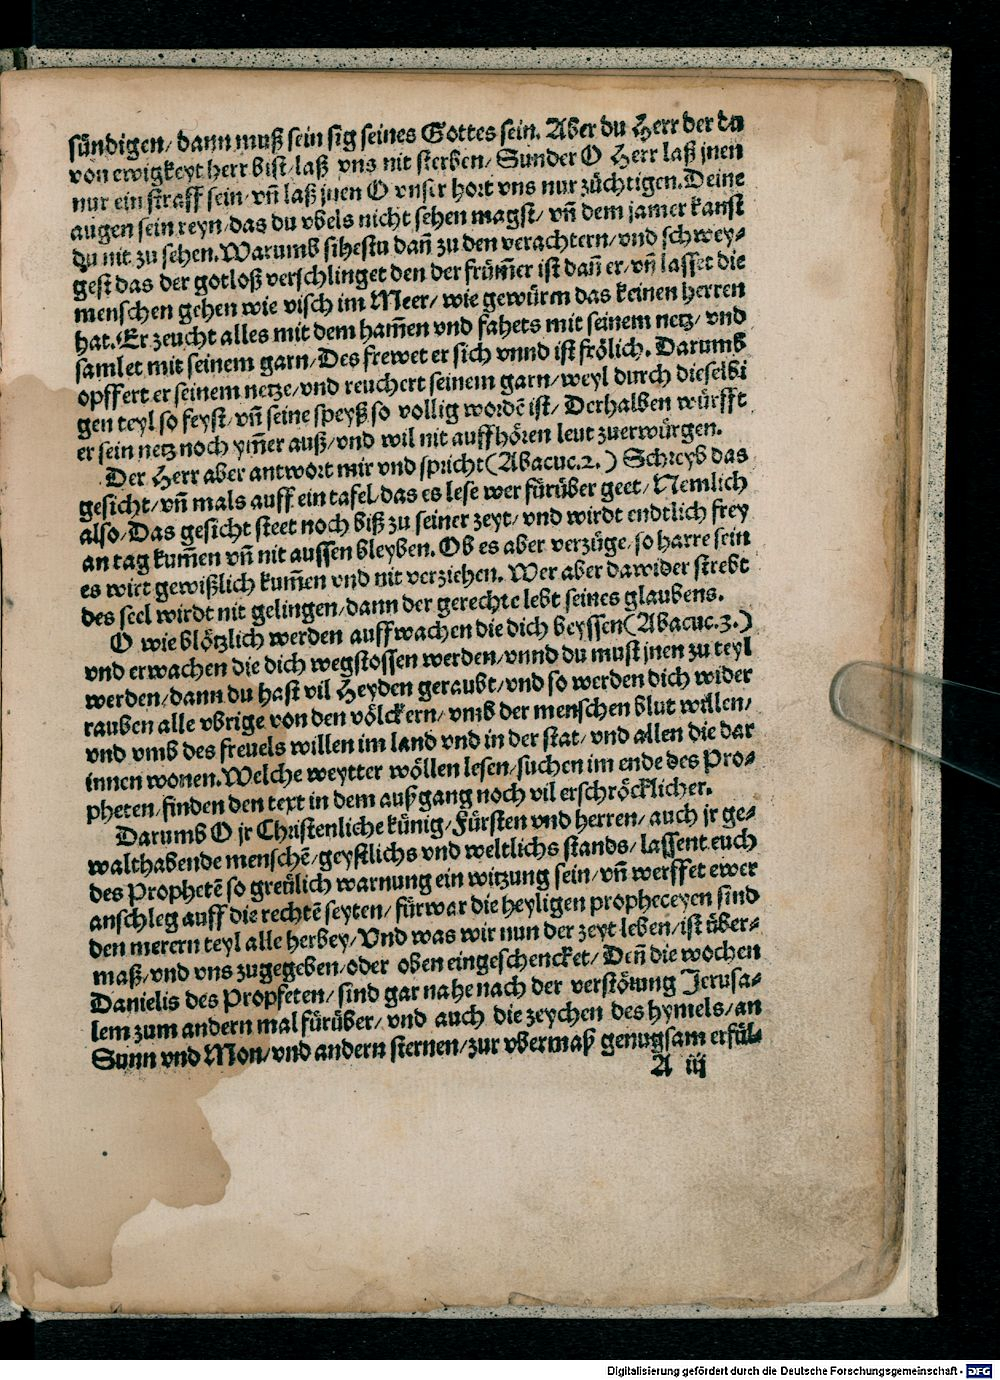 sündigen/ dann muß sein sig seines Gottes sein. Aber du Herr der du
von ewigkeyt herr bist/ laß vns nit sterben/ Sunder O Herr laß jnen
nur ein straff sein/ vñ laß jnen O vnser hort vns nur züchtigen. Deine
augen sein reyn/ das du vbels nicht sehen magst/ vñ dem jamer kanst
du nit zu sehen. Warumb sihestu dañ zu den verachtern/ vnd schwey⸗
gest das der gotloß verschlinget den der frům̃er ist dañ er/ vñ lasset die
menschen gehen wie visch im Meer/ wie gewürm das keinen herren
hat. Er zeucht alles mit dem ham̃en vnd fahets mit seinem netz/ vnd
samlet mit seinem garn/ Des frewet er sich vnnd ist frölich. Darumb
opffert er seinem netze/ vnd reuchert seinem garn/ weyl durch dieselbi
gen teyl so feyst/ vñ seine speyß so vollig wordẽ ist/ Derhalben würfft
er sein netz noch ym̃er auß/ vnd wil nit auffhören leut zuerwürgen.
Der Herr aber antwort mir vnd spricht (Abacuc. 2.) Schreyb das
gesicht/ vñ mals auff ein tafel das es lese wer fürüber geet/ Nemlich
also/ Das gesicht steet noch biß zu seiner zeyt/ vnd wirdt endtlich frey
an tag kum̃en vñ nit aussen bleyben. Ob es aber verzüge/ so harre sein
es wirt gewißlich kum̃en vnd nit verziehen. Wer aber dawider strebt
des seel wirdt nit gelingen/ dann der gerechte lebt seines glaubens.
O wie blötzlich werden auffwachen die dich beyssen (Abacuc. 3.)
vnd erwachen die dich wegstossen werden/ vnnd du must jnen zu teyl
werden/ dann du hast vil Heyden geraubt/ vnd so werden dich wider
rauben alle vbrige von den völckern/ vmb der menschen blut willen/
vnd vmb des freuels willen im land vnd in der stat/ vnd allen die dar
innen wonen. Welche weytter wöllen lesen/ suchen im ende des Pro⸗
pheten/ finden den text in dem außgang noch vil erschröcklicher.
Darumb O jr Christenliche künig/ Fürsten vnd herren/ auch jr ge⸗
walthabende menschẽ/ geystlichs vnd weltlichs stands/ lassent euch
des Prophetẽ so greülich warnung ein witzung sein/ vñ werffet ewer
anschleg auff die rechtẽ seyten/ fürwar die heyligen propheceyen sind
den merern teyl alle herbey/ Vnd was wir nun der zeyt leben/ ist über⸗
maß/ vnd vns zugegeben/ oder oben eingeschencket/ Deñ die wochen
Danielis des Propfeten/ sind gar nahe nach der verstörung Jerusa⸗
lem zum andern mal fürüber/ vnd auch die zeychen des hymels/ an
Sunn vnd Mon/ vnd andern sternen/ zur vbermaß genugsam erfül⸗
A iij
Digitalisierung gefördert durch die Deutsche Forschungsgemeinschaft - DFG